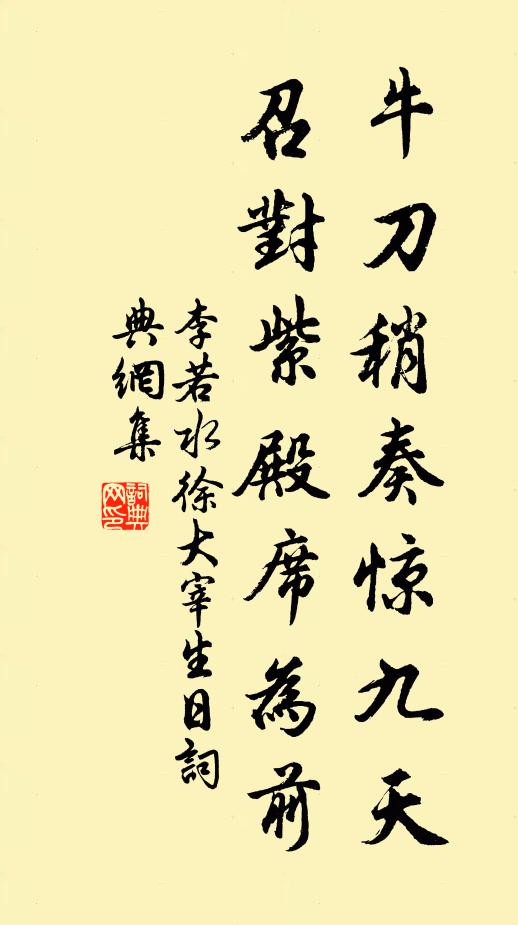 牛刀稍奏惊九天
召對紫殿席為前
李若水徐大宰生日詞
典網集
詞典
网印